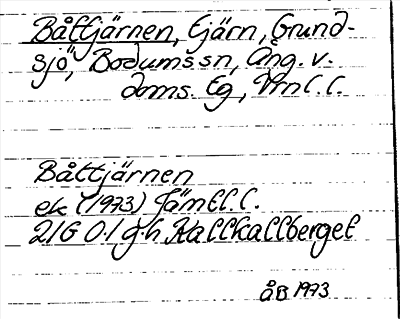 Båttjärnen, tjärn, Grund-
sjö, Bodums sn, Ång. v.
doms. tg, Vrnl. l.
Båttjärnen
ek (1973) Jämtl. l.
21G 0-1 g-h Kallkallberget
ÅB 1973